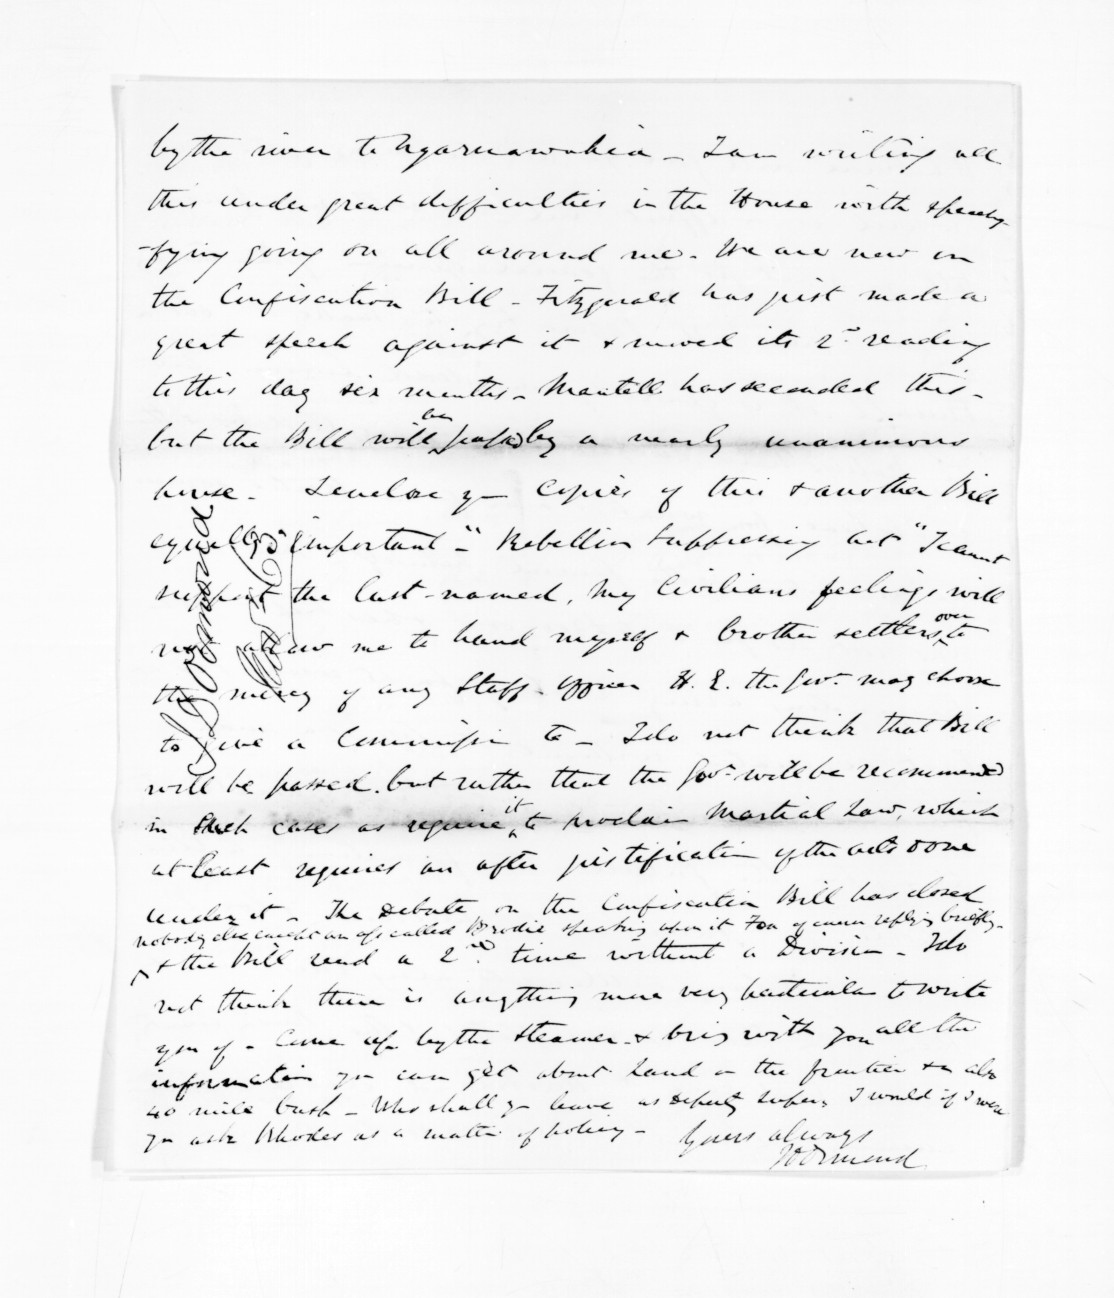 by the river to Ngaruawahia - I am writing all
this under great difficulties in the House with speechy
-fying going on all around me. We are now on
the Confiscation Bill - Fitzgerald has just made a
great speech against it & moved its 2nd reading
to this day six months - Mantell has seconded this -
but the Bill will be passed by a nearly unanimous
house. I enclose you copies of this & another Bill
equally important - "Rebellion Suppressing act" I cannot
support the last-named, my Civilians feelings will
not allow me to hand myself & brother settlers over to
the mercy of any Staff-officer H. E. the Govr. may choose
to give a Commission to - I do not think that Bill
will be passed. but rather that the Govr. will be recommended
in such cases as require it to proclaim Martial Law, which
at least requires an after justification of the acts done
under it - The Debate on the Confiscation Bill has closed
nobody else except an ass called Brodie speaking upon it Fox of course replying briefly -
& the Bill read a 2nd. time without a Division - I do
not think there is anything more very particular to write
you of - Come up by the Steamer & bring with you all the
information you can get about land on the frontier & in also
40 mile bush - Who shall you leave as Deputy Super. I would if I were
you ask Rhodes as a matter of policy -
Yours always
JD Ormond
J. D Ormond
Nov 63